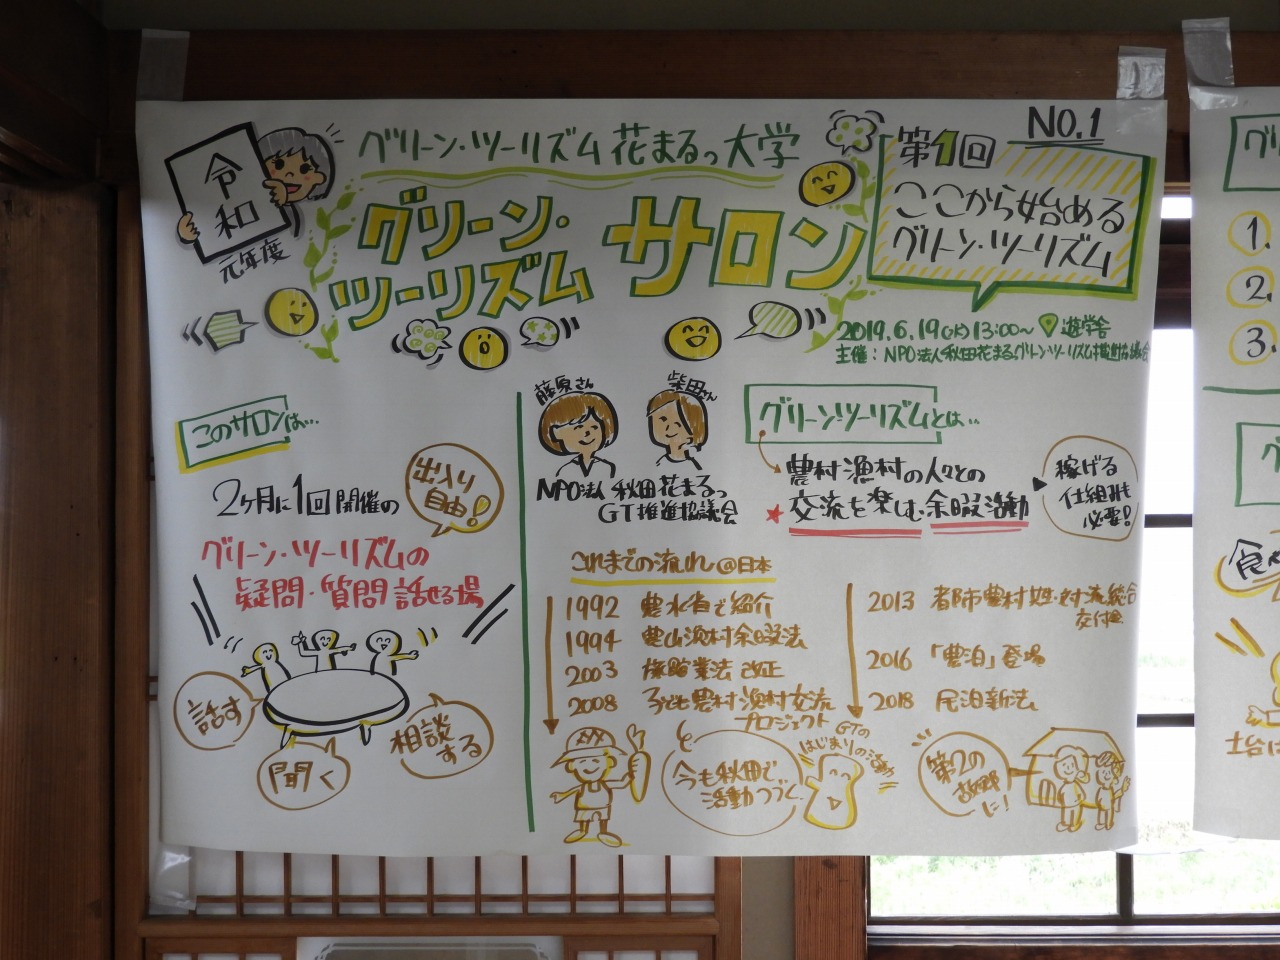 令和
元年度
グリーン・ツーリズム花まるっ大学
グリーン・
ツーリズム
サロン
NO.1
第1回
ここから始める
グリーン・ツーリズム
2019.6.19(水)13:00〜 遊学舎
主催：NPO法人秋田花まるグリーン・ツーリズム推進協議会
このサロンは…
2ヶ月に1回開催の
出入り
自由!
グリーン・ツーリズムの
疑問・質問話せる場
話す
聞く
相談
する
藤原さん
柴田さん
NPO法人 秋田花まるっ
GT推進協議会
グリーンツーリズムとは…
農村漁村の人々との
交流を楽しむ余暇活動
稼げる
仕組みも
必要!
これまでの流れ@日本
1992 農水省で紹介
1994 農山漁村余暇法
2003 旅館業法 改正
2008 子ども農村漁村交流
プロジェクト
2013 都市農村共生・対流総合
交付金
2016 「農泊」登場
2018 民泊新法
今も秋田で
活動つづく
GTの
はじまりの活動
第2の
故郷
に!
グリ
1.
2.
3.
グ
食べ
土台に